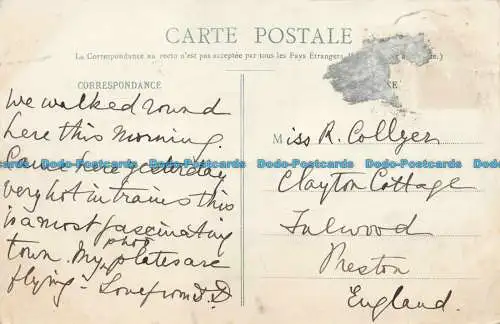 CARTE POSTALE
(La Correspondance au recto n'est pas acceptée par tous les Pays Étrangers
CORRESPONDANCE
We walked round
here this morning.
Came here yesterday
very hot in trains this
is a most fascinating
town. My photo plates are
flying - Love from
Miss R. Collyer
Clayton Cottage
Fulwood
Preston
England.
Dodo-Postcards Dodo-Postcards Dodo-Postcards Dodo-Postcards Dodo-Postcards